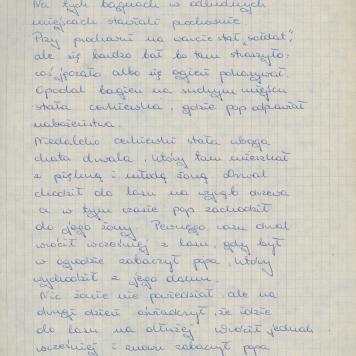 Na tych bagnach w odludnych
miejscach stawiali prochownie.
Przy prochowni na warcie stał "sołdat",
ale się bardzo bał bo tam straszyło:
coś jęczało albo się ogień pokazywał.
Opodal bagien na suchym miejscu
stała cerkiewka, gdzie pop odprawiał
nabożeństwa.
Niedaleko cerkiewki stała uboga
chata drwala, który tam mieszkał
z piękną i młodą żoną. Drwal
chodził do lasu na wyrąb drzewa
a w tym czasie pop zachodził
do jego żony. Pewnego razu drwal
wrócił wcześniej z lasu, gdy był
w ogrodzie zobaczył popa, który
wychodził z jego domu.
Nic żonie nie powiedział, ale na
drugi dzień oświadczył, że idzie
do lasu na dłużej. Wrócił jednak
wcześniej i znowu zobaczył popa